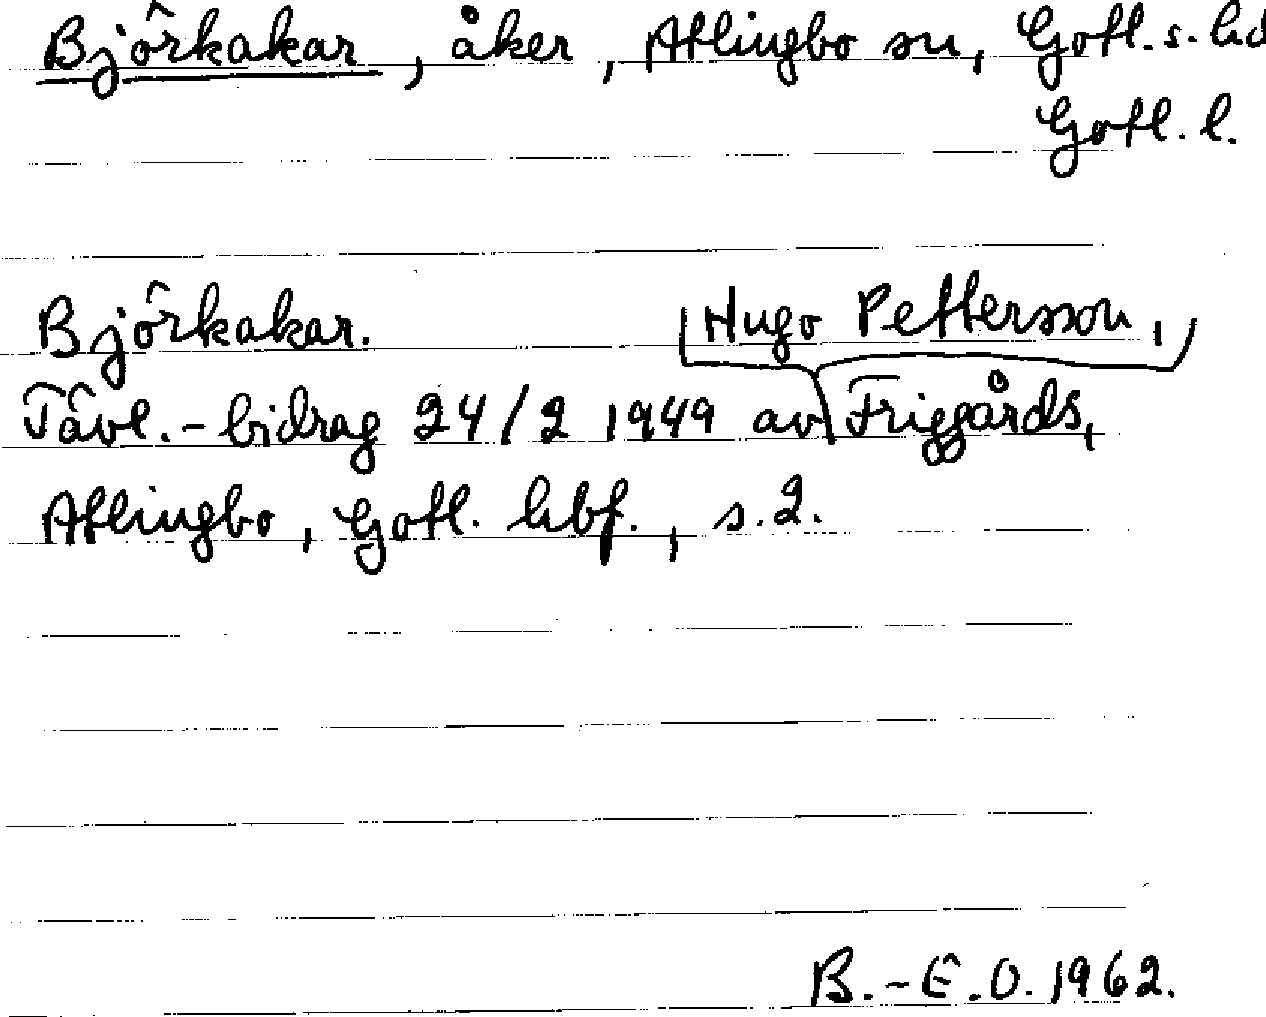 Björkakar, åker, Atlingbo sn, Gotl. s. hd
Gotl. l.
Björkakar.
Hugo Pettersson,
Tävl.-bidrag 24/2 1949 av Friggårds,
Atlingbo, Gotl. hbf., s. 2.
B.-E.O. 1962.